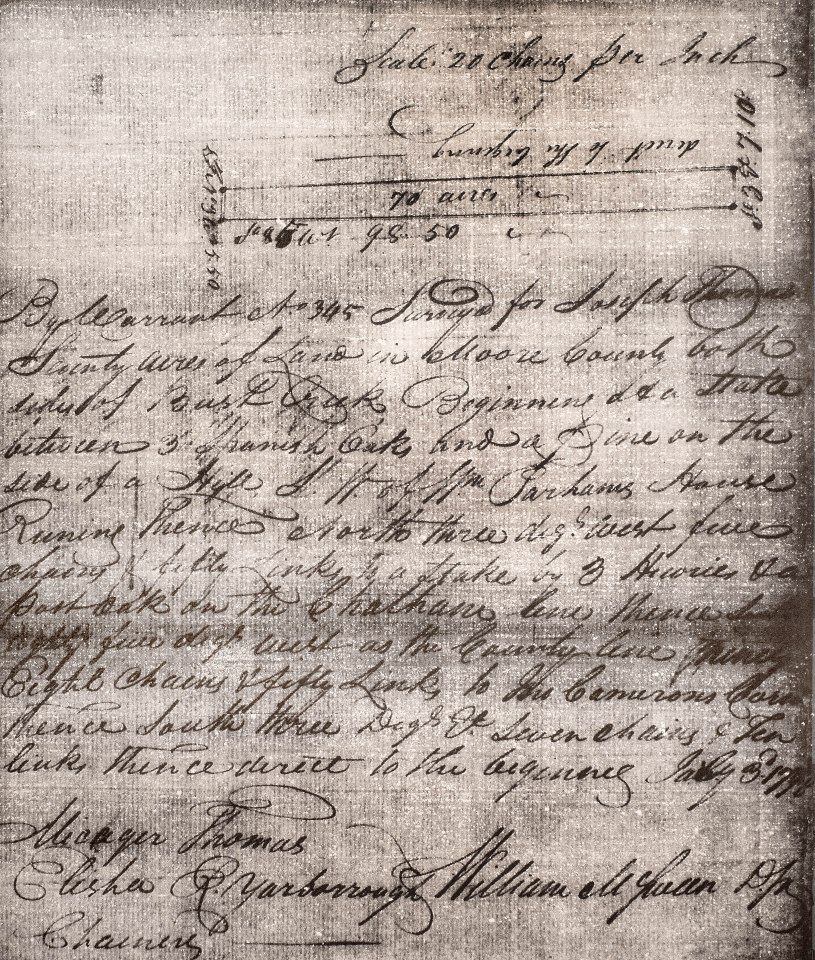 Scale 20 Chains per Inch
direct to the begining
70 acres
98 50
By Warrant No 345 Surveyd for Joseph Thomas
Seventy acres of Land in Moore County both
sides of Creek Beginning at a Stake
between 3 Spanish Oaks and a Pine on the
side of a Hill S. W. of Wm Farhams House
Runing Thence North three degs. west five
chains & fifty Links to a stake by 3 Hicories & a
post oak on the Chatham line thence
Eighty five degs west as the County line Ninety
Eight Chains & fifty Links to Camerons Corn
thence South three Degs Et Seven chains & Ten
links thence direct to the begining July 3d
Micager Thomas
Elisha Yarborrough William McSween D.S.
Chainers